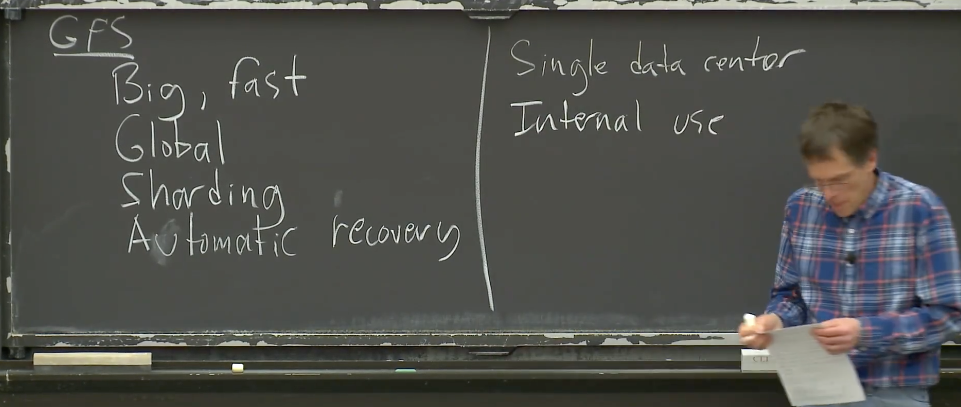 GFS
Big, fast
Global
Sharding
Automatic recovery
Single data centor
Internal use